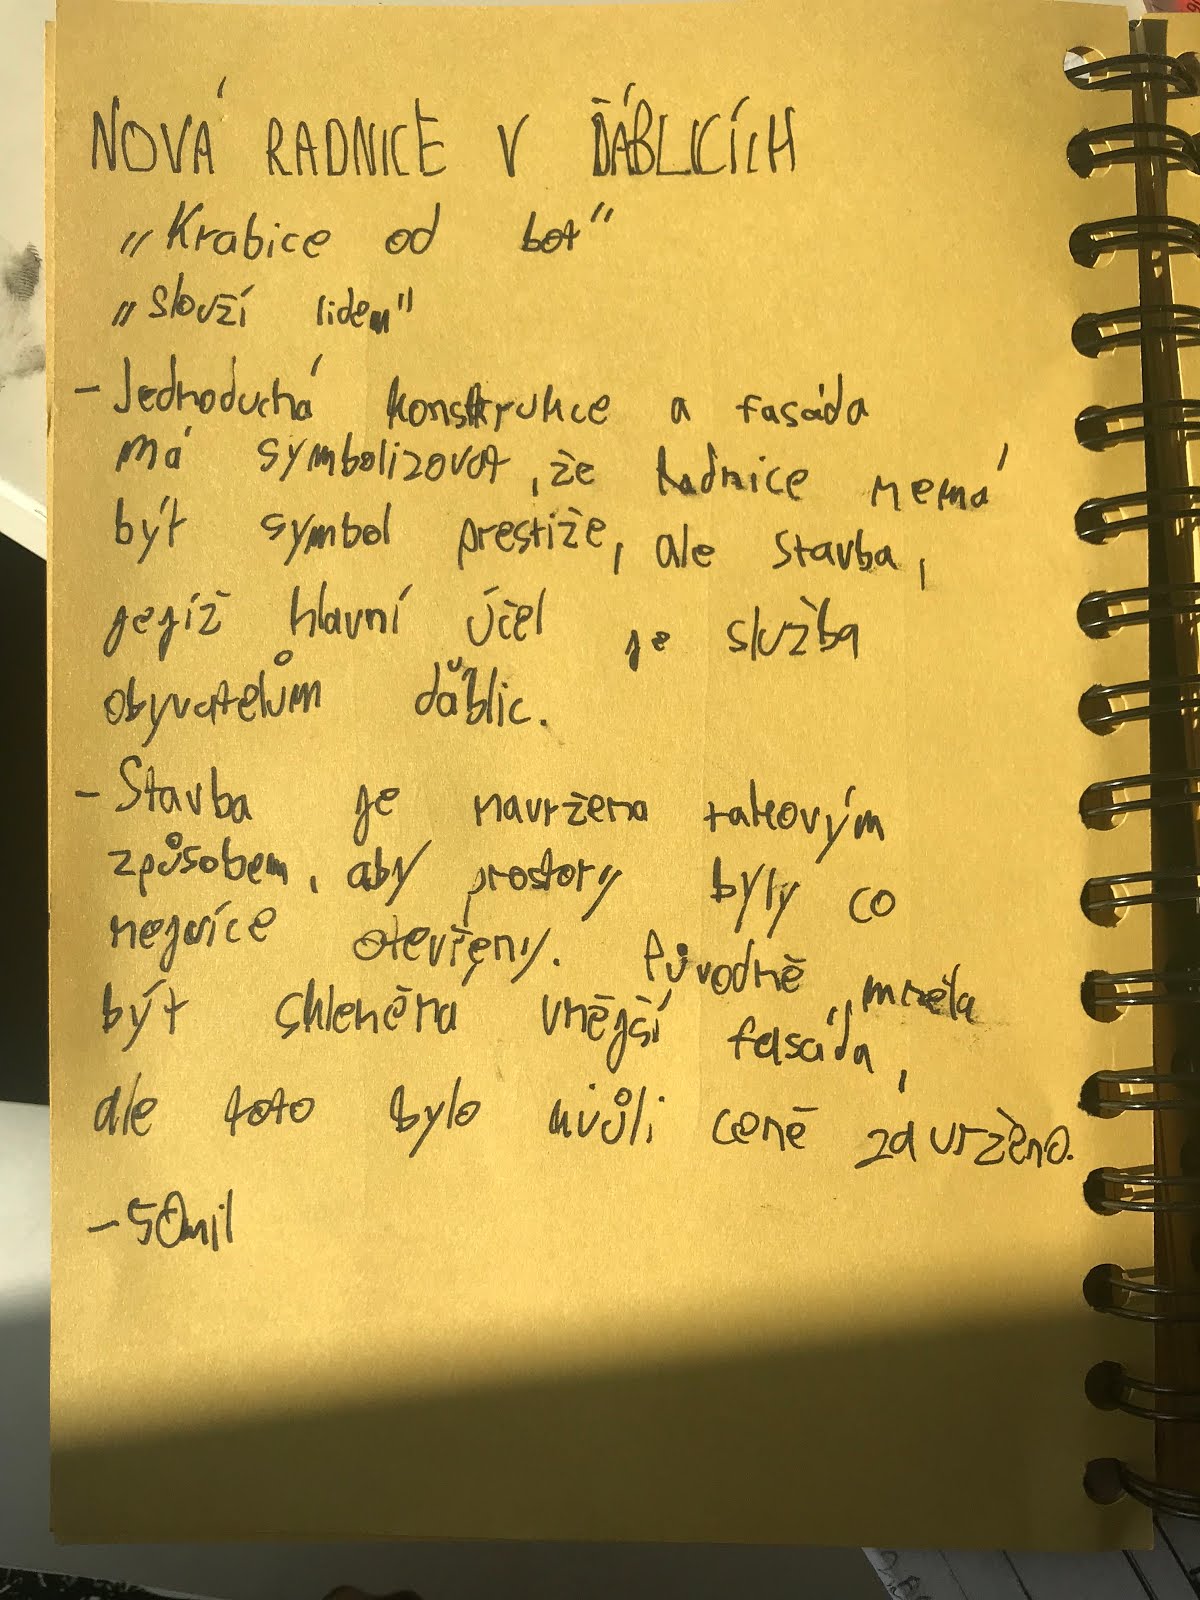 NOVÁ RADNICE V ĎÁBLICÍCH
„Krabice od bot"
„Slouží lidem"
- Jednoduchá konstrukce a fasáda
má symbolizovat, že Radnice nemá
být symbol prestiže, ale stavba,
jejíž hlavní účel je služba
obyvatelům ďáblic.
- Stavba je navržena takovým
způsobem, aby prostory byly co
nejvíce otevřeny. Původně měla
být skleněná vnější fasáda,
ale toto bylo kvůli ceně zavrženo.
- 50mil